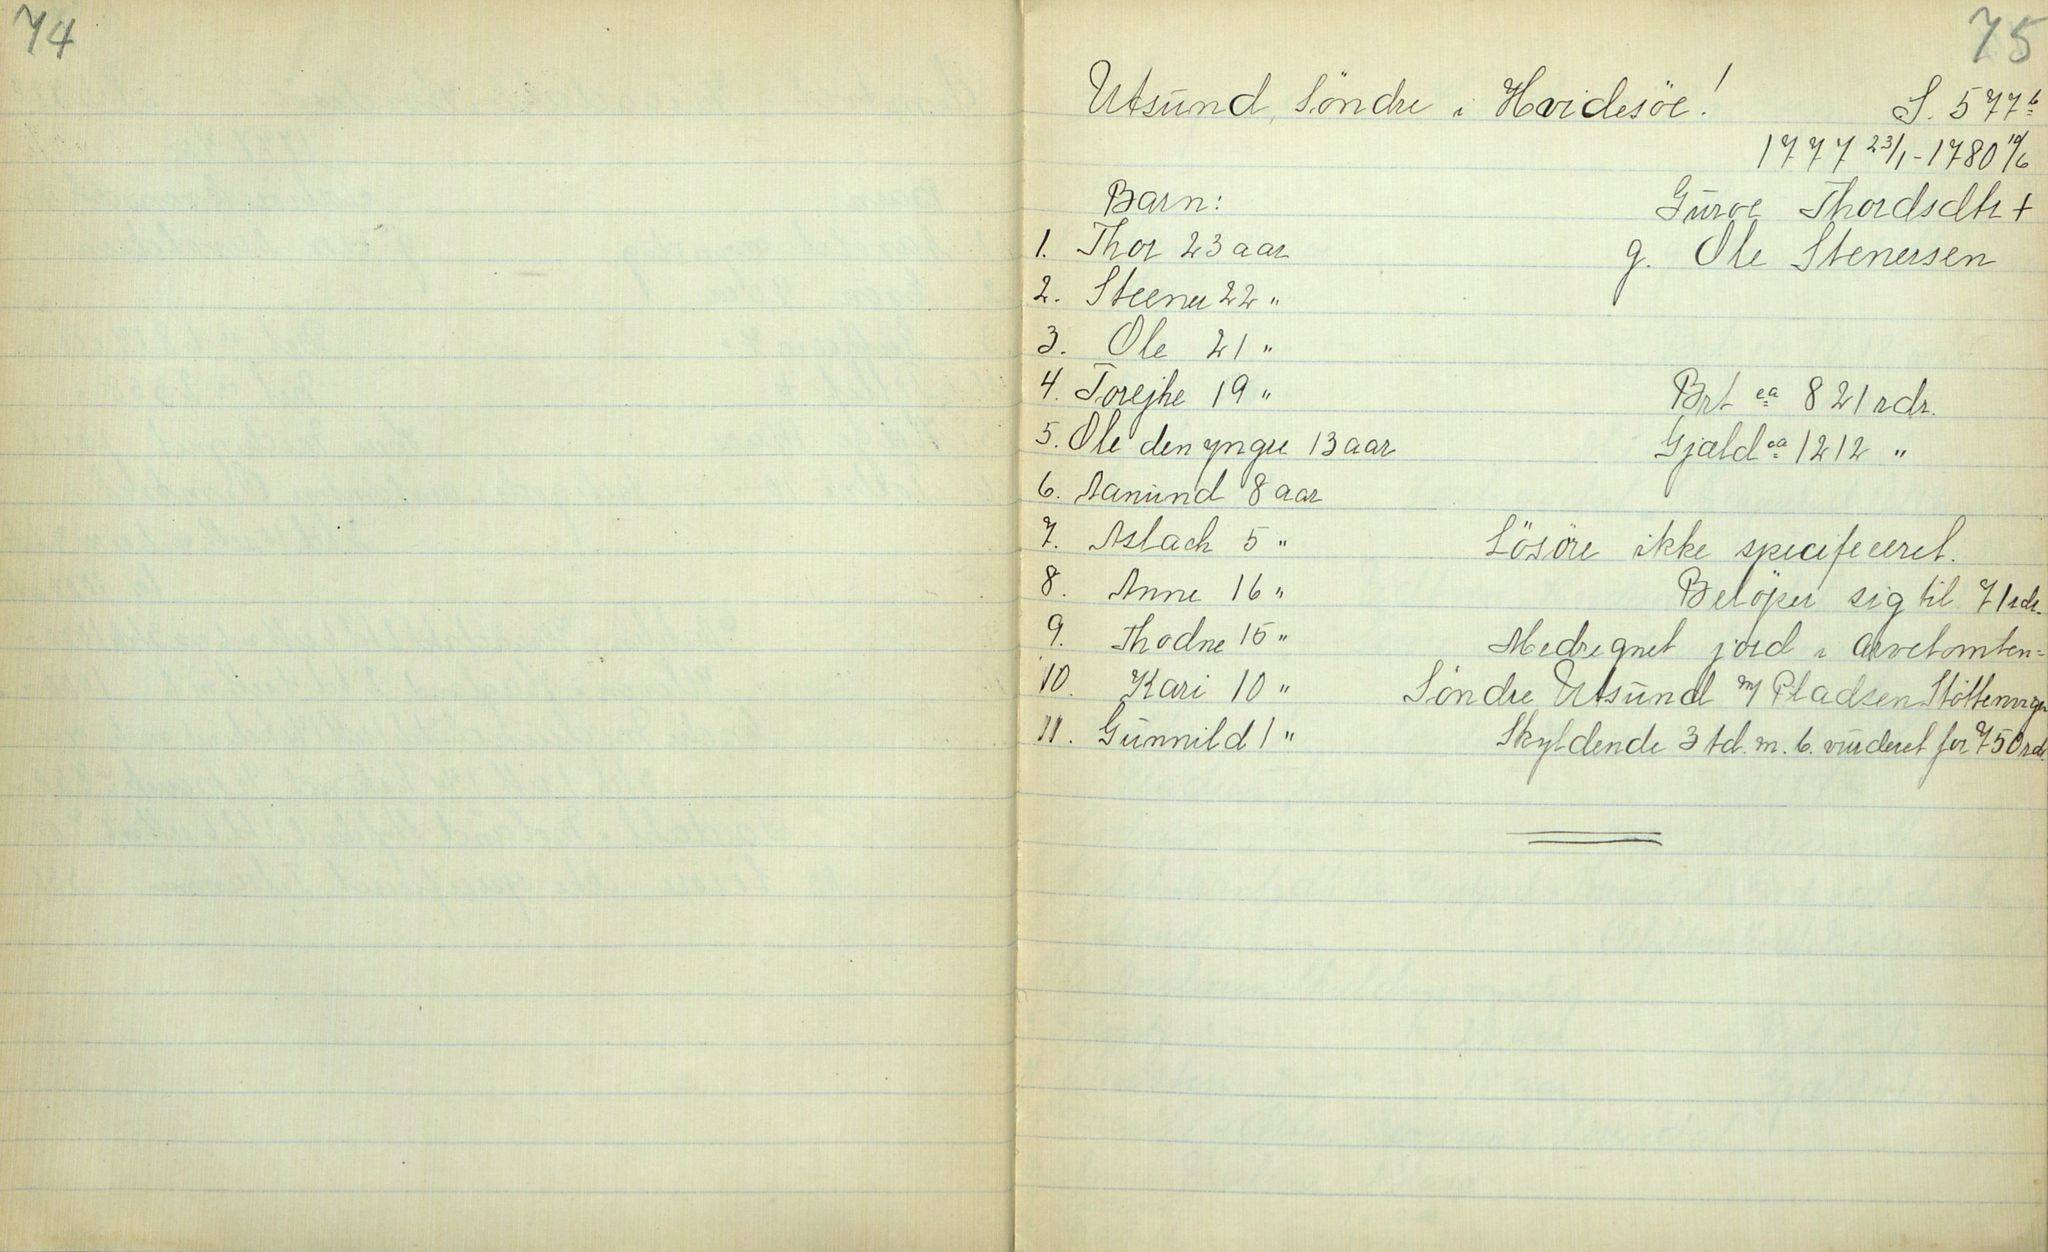 74
75
Utsund, Söndre i Hvidesöe!
S. 577b
1777 23/1 - 1780 10/6
Barn:
Guroe Thordsdtr +
1. Thor 23 aar
g. Ole Stenersen
2. Steener 22 "
3. Ole 21 "
4. Torejhe 19 "
Brt ca 821 rdr.
5. Ole den yngre 13 aar
Gjæld ca 1212 "
6. Aanund 8 aar
7. Aslach 5 "
Lösöre ikke specifeceret.
8. Anne 16 "
Belöper sig til 71 rdr.
9. Thodne 15 "
Medregnet jord i arvetomten=
10. Kari 10 "
Söndre Utsund m/ Pladsen
11. Gunnild 1 "
Skyldende 3 td. m. b. vurderet for 750 rdr.